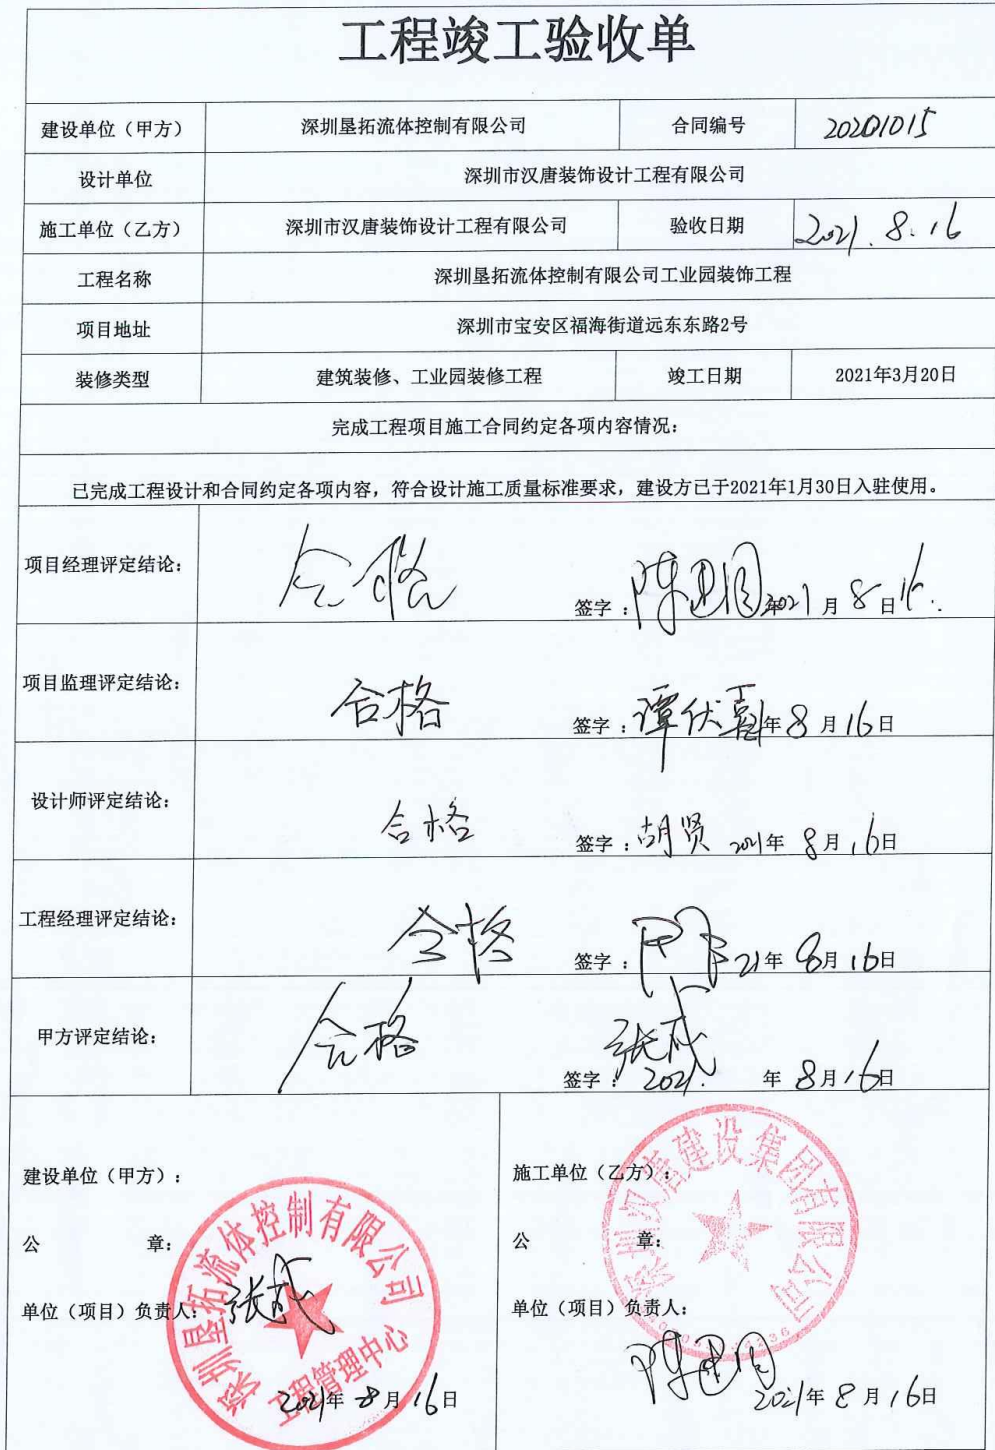 工程竣工验收单
建设单位（甲方） 深圳垦拓流体控制有限公司 合同编号 20201015
设计单位 深圳市汉唐装饰设计工程有限公司
施工单位（乙方） 深圳市汉唐装饰设计工程有限公司 验收日期 2021.8.16
工程名称 深圳垦拓流体控制有限公司工业园装饰工程
项目地址 深圳市宝安区福海街道远东东路2号
装修类型 建筑装修、工业园装修工程 竣工日期 2021年3月20日
完成工程项目施工合同约定各项内容情况：
已完成工程设计和合同约定各项内容，符合设计施工质量标准要求，建设方已于2021年1月30日入驻使用。
项目经理评定结论： 合格 签字：陈 年2021月8日16.
项目监理评定结论： 合格 签字：谭伏喜 年8月16日
设计师评定结论： 合格 签字：胡贤 2021年8月16日
工程经理评定结论： 合格 签字： 21年8月16日
甲方评定结论： 合格 签字：张成 2021. 年8月16日
建设单位（甲方）：
公 章：
单位（项目）负责人：张成
2021年8月16日
深圳垦拓流体控制有限公司
工程管理中心
施工单位（乙方）：
公 章：
单位（项目）负责人：
陈
2021年8月16日
深圳汉唐建设集团有限公司